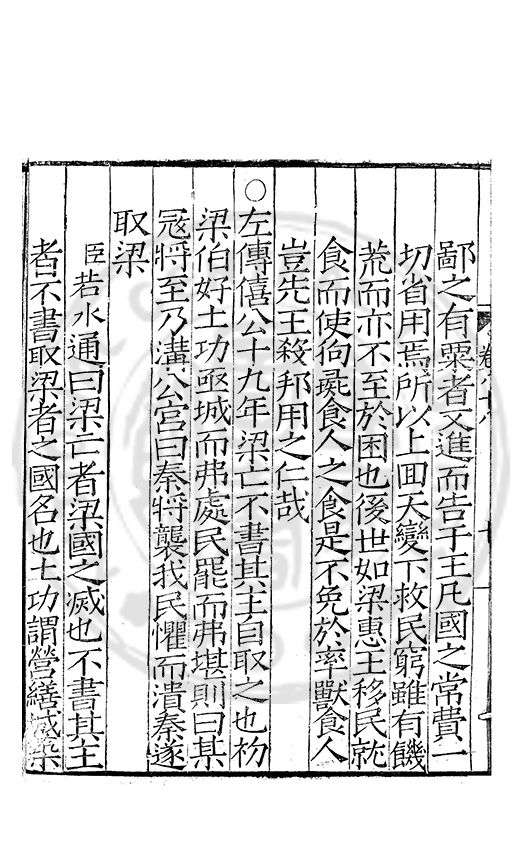 鄙之有粟者又進而告于王凡國之常費一
切省用焉所以上囬天變下救民窮雖有饑
荒而亦不至於困也後世如梁惠王移民就
食而使狗彘食人之食是不免於率獸食人
豈先王殺邦用之仁哉
○左傳僖公十九年梁亡不書其主自取之也初
梁伯好土功亟城而弗處民罷而弗堪則曰某
冦將至乃溝公宮曰秦將襲我民懼而潰秦遂
取梁
臣若水通曰梁亡者梁國之滅也不書其主
者不書取梁者之國名也土功謂營繕城築